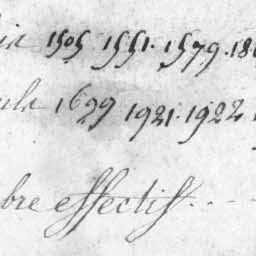 1505 1551. 1579. 18
1699 1921. 1922
bre effectif . . . .